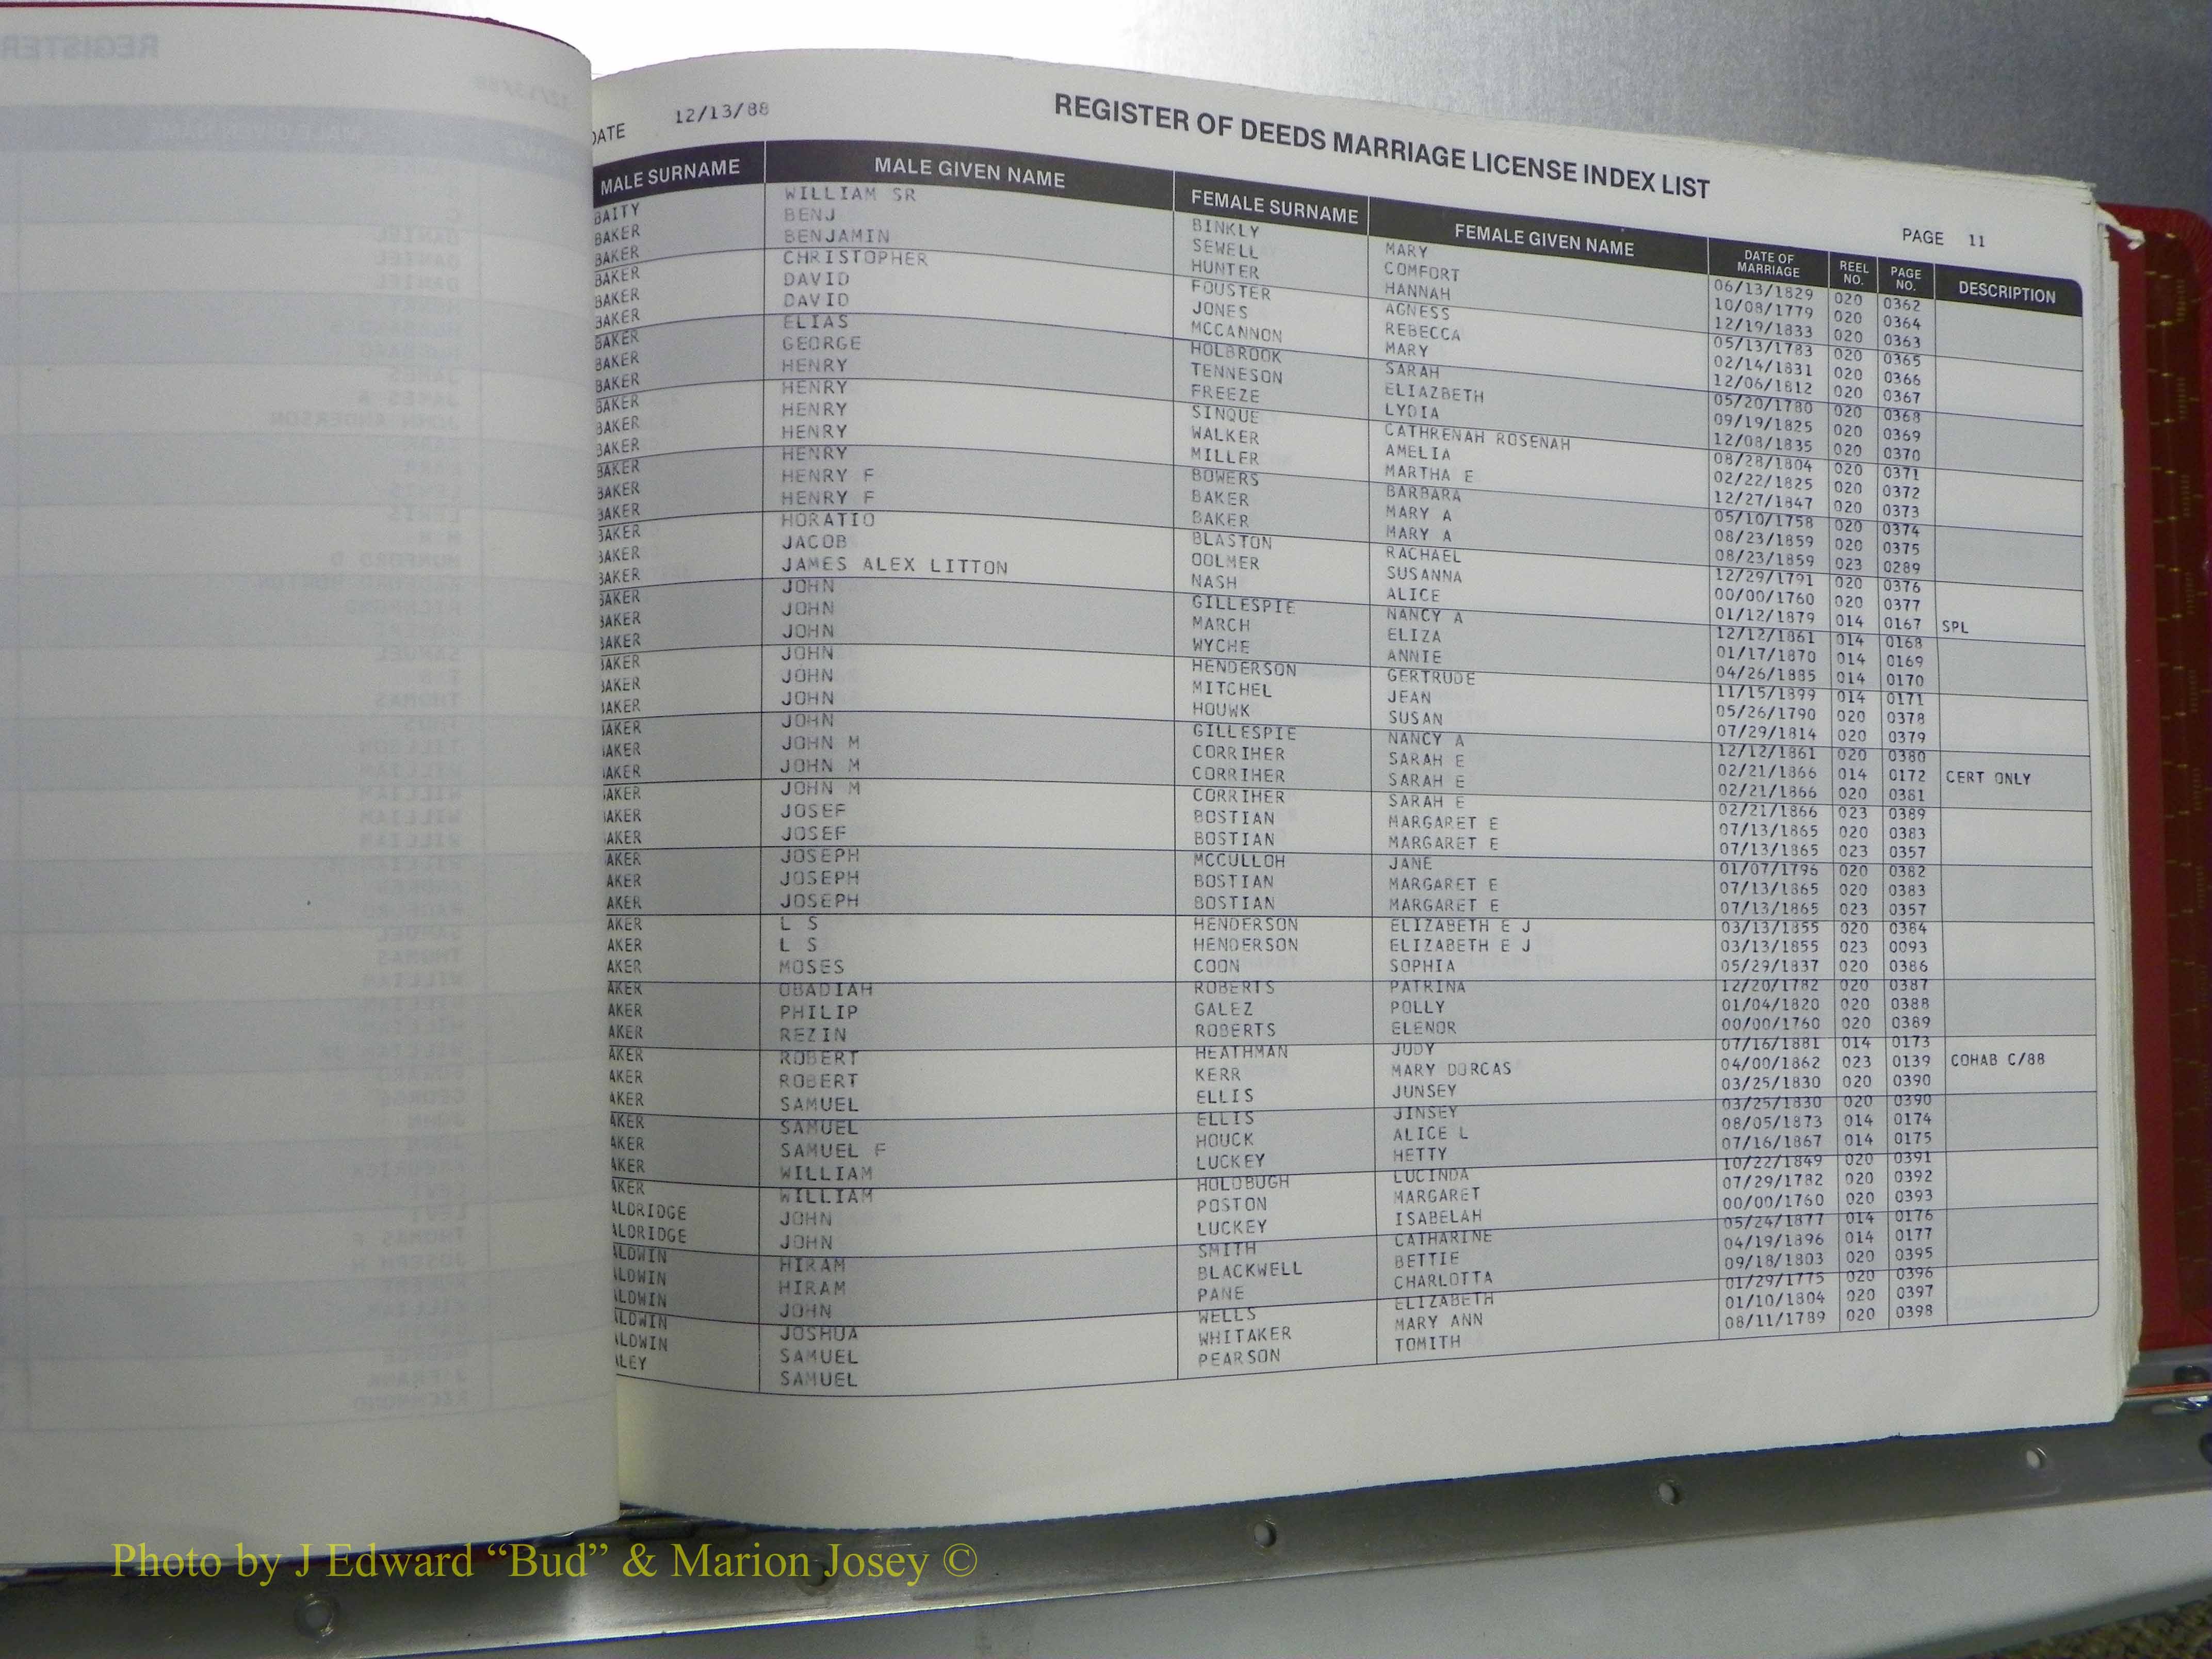 DATE 12/13/88
REGISTER OF DEEDS MARRIAGE LICENSE INDEX LIST
PAGE 11
MALE SURNAME MALE GIVEN NAME FEMALE SURNAME FEMALE GIVEN NAME DATE OF MARRIAGE REEL NO. PAGE NO. DESCRIPTION
BAITY WILLIAM SR BINKLY MARY 06/13/1829 020 0362
BAKER BENJ SEWELL COMFORT 10/08/1779 020 0364
BAKER BENJAMIN HUNTER HANNAH 12/19/1833 020 0363
BAKER CHRISTOPHER FOUSTER AGNESS 05/13/1783 020 0365
BAKER DAVID JONES REBECCA 02/14/1831 020 0366
BAKER DAVID MCCANNON MARY 12/06/1812 020 0367
BAKER ELIAS HOLBROOK SARAH 05/20/1780 020 0368
BAKER GEORGE TENNESON ELIAZBETH 09/19/1825 020 0369
BAKER HENRY FREEZE LYDIA 12/08/1835 020 0370
BAKER HENRY SINQUE CATHRENAH ROSENAH 08/28/1804 020 0371
BAKER HENRY WALKER AMELIA 02/22/1825 020 0372
BAKER HENRY MILLER MARTHA E 12/27/1847 020 0373
BAKER HENRY BOWERS BARBARA 05/10/1758 020 0374
BAKER HENRY F BAKER MARY A 08/23/1859 020 0375
BAKER HENRY F BAKER MARY A 08/23/1859 023 0289
BAKER HORATIO BLASTON RACHAEL 12/29/1791 020 0376
BAKER JACOB OOLMER SUSANNA 00/00/1760 020 0377
BAKER JAMES ALEX LITTON NASH ALICE 01/12/1879 014 0167 SPL
BAKER JOHN GILLESPIE NANCY A 12/12/1861 014 0168
BAKER JOHN MARCH ELIZA 01/17/1870 014 0169
BAKER JOHN WYCHE ANNIE 04/26/1885 014 0170
BAKER JOHN HENDERSON GERTRUDE 11/15/1899 014 0171
AKER JOHN MITCHEL JEAN 05/26/1790 020 0378
AKER JOHN HOUWK SUSAN 07/29/1814 020 0379
AKER JOHN GILLESPIE NANCY A 12/12/1861 020 0380
AKER JOHN M CORRIHER SARAH E 02/21/1866 014 0172 CERT ONLY
AKER JOHN M CORRIHER SARAH E 02/21/1866 020 0381
AKER JOHN M CORRIHER SARAH E 02/21/1866 023 0389
AKER JOSEF BOSTIAN MARGARET E 07/13/1865 020 0383
AKER JOSEF BOSTIAN MARGARET E 07/13/1865 023 0357
AKER JOSEPH MCCULLOH JANE 01/07/1796 020 0382
AKER JOSEPH BOSTIAN MARGARET E 07/13/1865 020 0383
AKER JOSEPH BOSTIAN MARGARET E 07/13/1865 023 0357
AKER L S HENDERSON ELIZABETH E J 03/13/1855 020 0384
AKER L S HENDERSON ELIZABETH E J 03/13/1855 023 0093
AKER MOSES COON SOPHIA 05/29/1837 020 0386
AKER OBADIAH ROBERTS PATRINA 12/20/1782 020 0387
AKER PHILIP GALEZ POLLY 01/04/1820 020 0388
AKER REZIN ROBERTS ELENOR 00/00/1760 020 0389
AKER ROBERT HEATHMAN JUDY 07/16/1881 014 0173
AKER ROBERT KERR MARY DORCAS 04/00/1862 023 0139 COHAB C/88
AKER SAMUEL ELLIS JUNSEY 03/25/1830 020 0390
AKER SAMUEL ELLIS JINSEY 03/25/1830 020 0390
AKER SAMUEL F HOUCK ALICE L 08/05/1873 014 0174
AKER WILLIAM LUCKEY HETTY 07/16/1867 014 0175
AKER WILLIAM HOLOBUGH LUCINDA 10/22/1849 020 0391
ALDRIDGE JOHN POSTON MARGARET 07/29/1782 020 0392
ALDRIDGE JOHN LUCKEY ISABELAH 00/00/1760 020 0393
ALDWIN HIRAM SMITH CATHARINE 05/24/1877 014 0176
ALDWIN HIRAM BLACKWELL BETTIE 04/19/1896 014 0177
ALDWIN JOHN PANE CHARLOTTA 09/18/1803 020 0395
ALDWIN JOSHUA WELLS ELIZABETH 01/29/1775 020 0396
ALDWIN SAMUEL WHITAKER MARY ANN 01/10/1804 020 0397
ALEY SAMUEL PEARSON TOMITH 08/11/1789 020 0398
Photo by J Edward “Bud” & Marion Josey ©